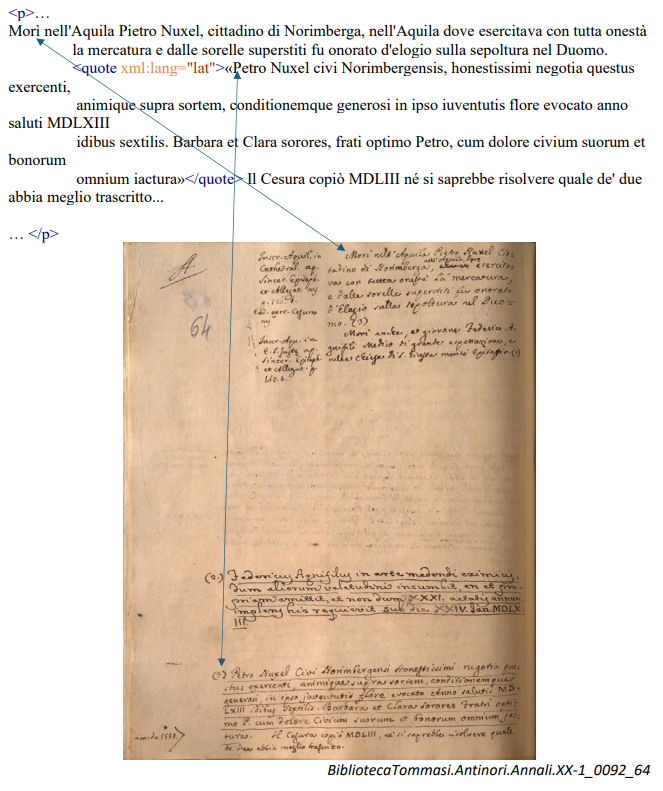 <p>…
Morì nell'Aquila Pietro Nuxel, cittadino di Norimberga, nell'Aquila dove esercitava con tutta onestà
la mercatura e dalle sorelle superstiti fu onorato d'elogio sulla sepoltura nel Duomo.
<quote xml:lang="lat">«Petro Nuxel civi Norimbergensis, honestissimi negotia questus
exercenti,
animique supra sortem, conditionemque generosi in ipso iuventutis flore evocato anno
saluti MDLXIII
idibus sextilis. Barbara et Clara sorores, frati optimo Petro, cum dolore civium suorum et
bonorum
omnium iactura»</quote> Il Cesura copiò MDLIII né si saprebbe risolvere quale de' due
abbia meglio trascritto...
… </p>
A.
64
Inscr. Aquil. in
Cathedral. ap.
et Allegat.
Morì nell'Aquila Pietro Nuxel Cit-
tadino di Norimberga, nell'Aquila, dove esercita-
va con tutta onestà la mercatura,
e dalle sorelle superstiti fu onorato
d'Elogio sulla sepoltura nel Duo-
mo. (1)
Morì anche, et giovane Federico A-
gnifili Medico di grande espettazione, e
nella Chiesa di S. Giusta Epitaffio. (2)
(2.) Federicus Agnifilus in arte medendi eximius,
dum aliorum valetudini incumbit, en et pro-
priam amittit, et non dum XXXI. aetatis annum
implens hic requievit sub die XXIV. Jan. MDLX-
III.
(1) Petro Nuxel Civi Norimbergensi honestissimi negotia que-
stus exercenti, animique supra sortem, conditionemque
generosi, in ipso juventutis flore evocato Anno saluti MD-
LXIII idibus Sextilis. Barbara et Clara sorores Fratri opti-
mo P. cum dolore Civium suorum et bonorum omnium jac-
tura. Il Cesura copiò MDLIII, né si saprebbe risolvere quale
de due abbia meglio trascritto.
BibliotecaTommasi.Antinori.Annali.XX-1_0092_64